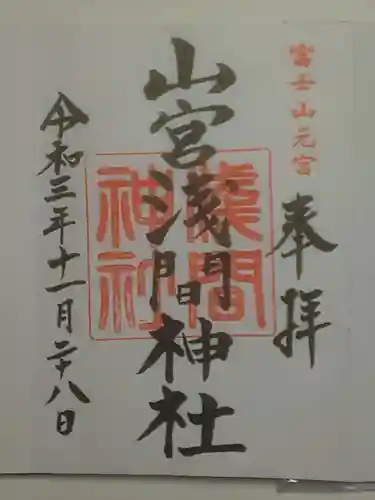 富士山元宮
奉拝
山宮浅間神社
浅間神社
令和三年十一月二十八日